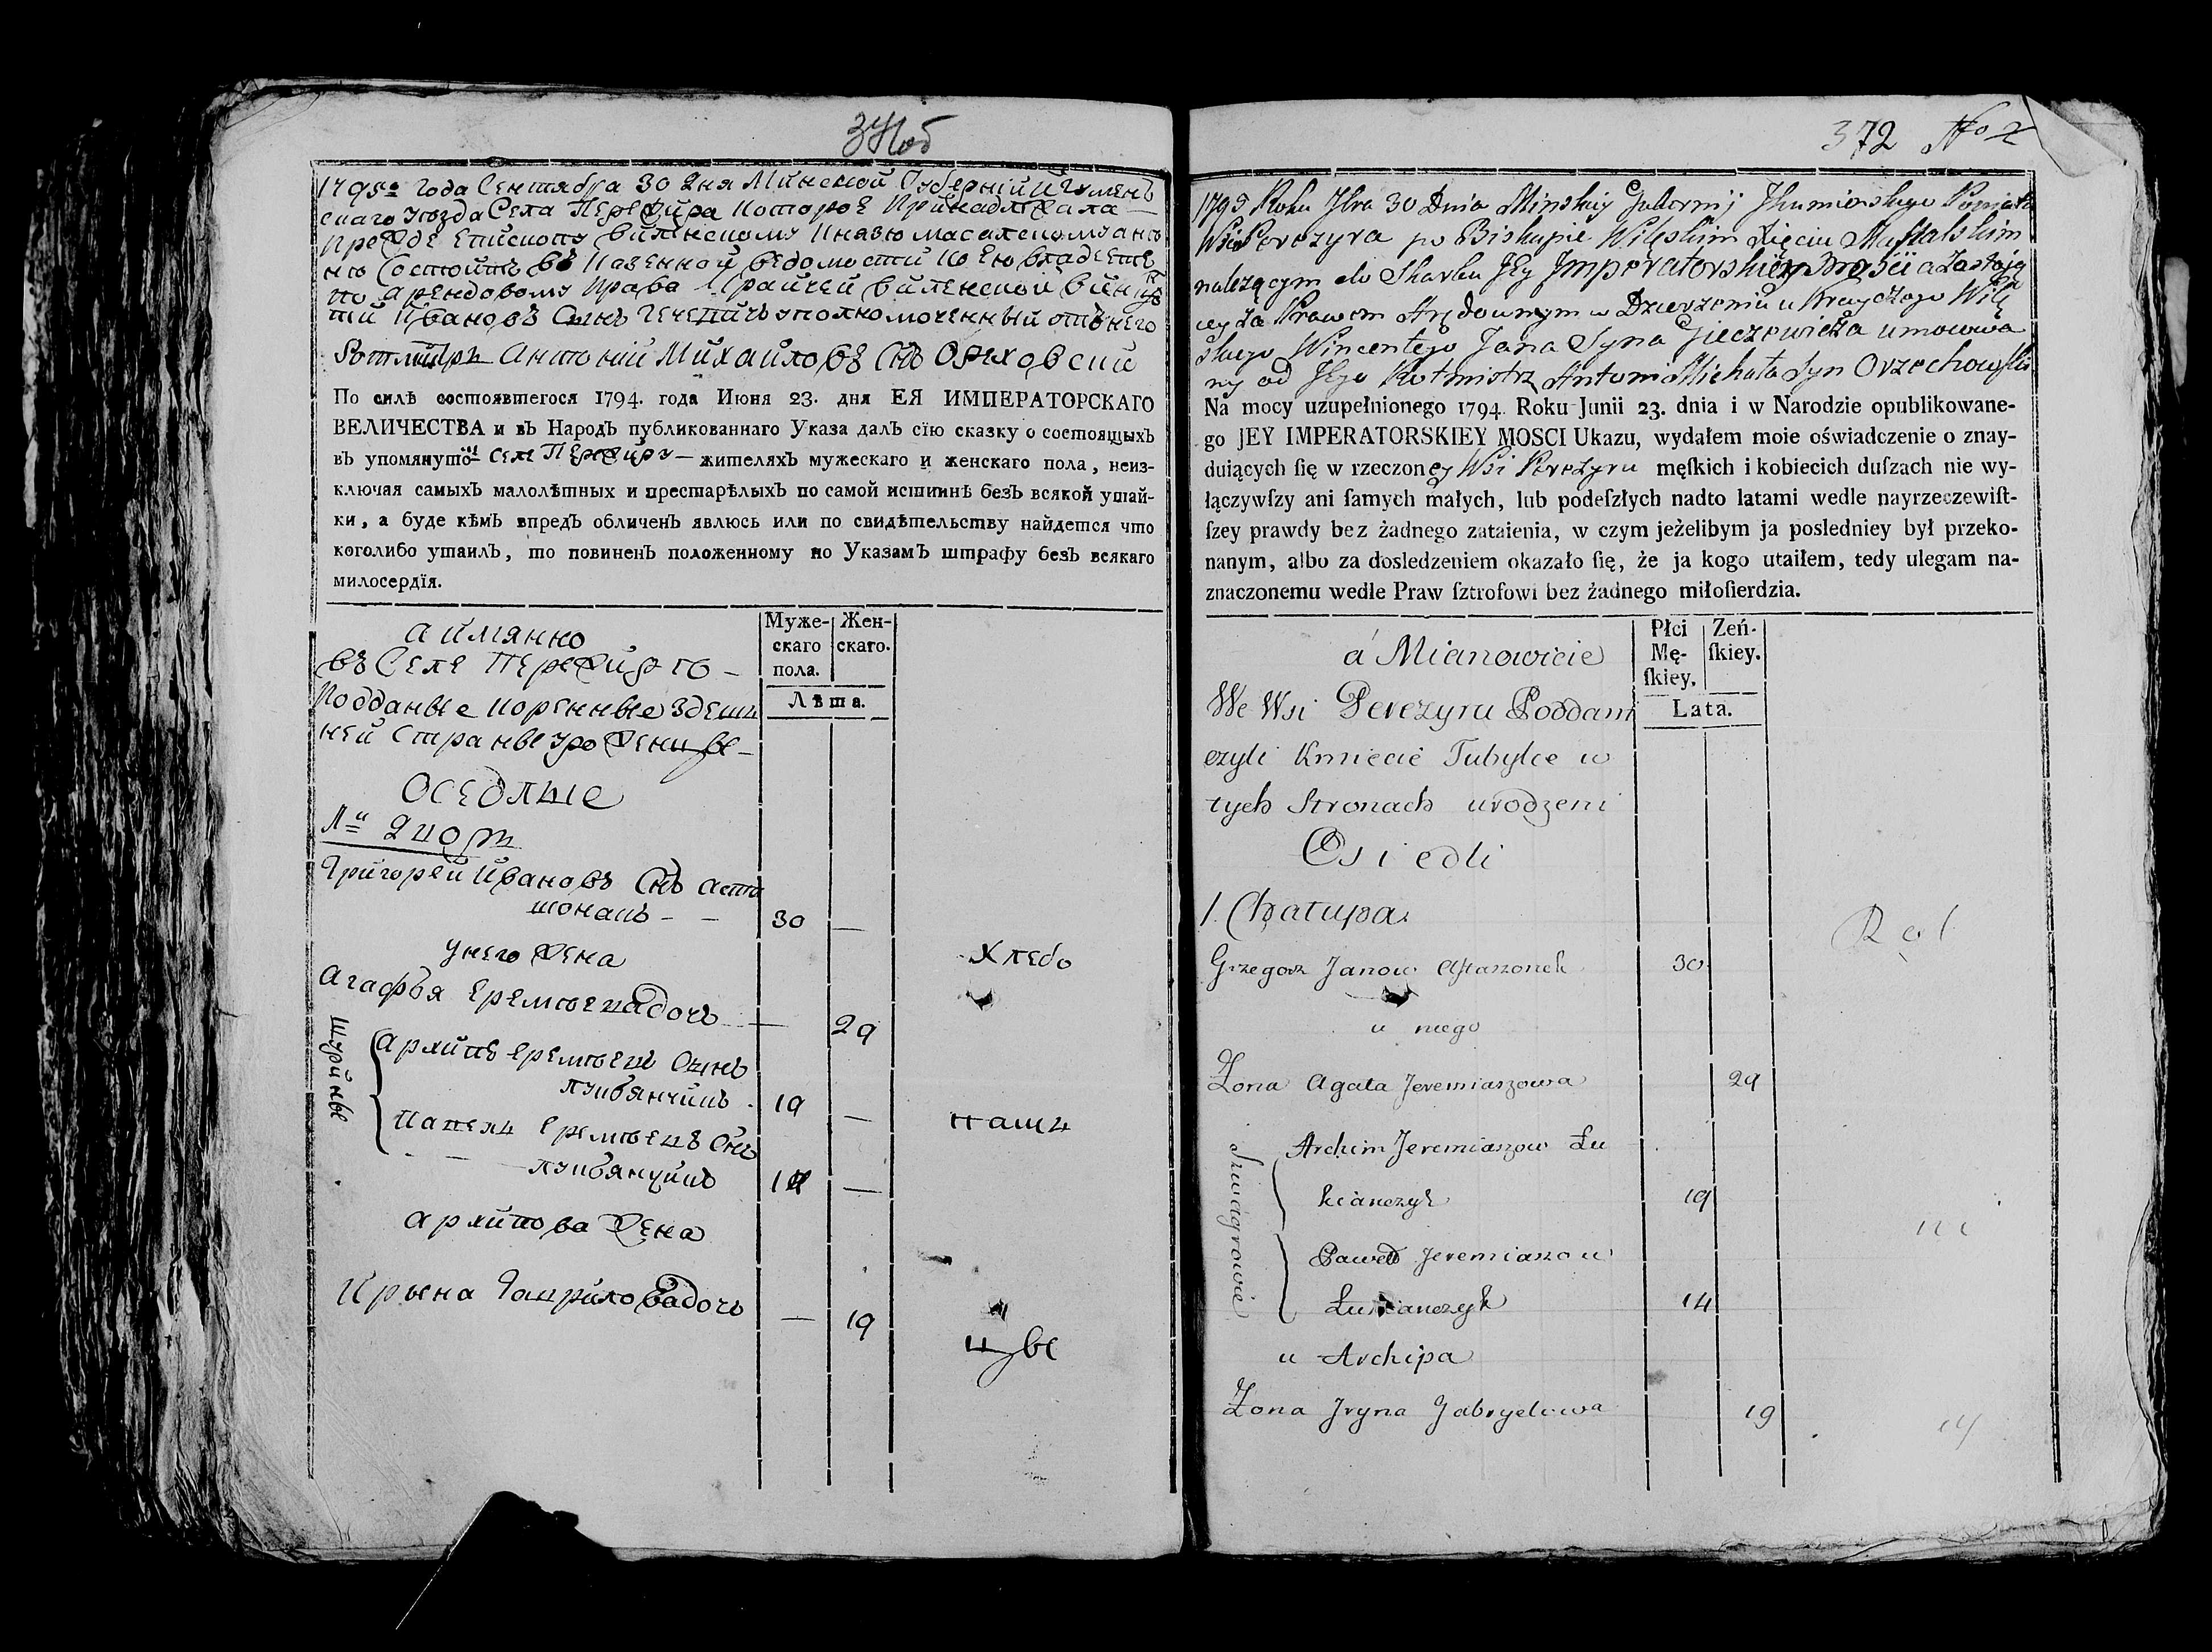 371об
1795го года Сентября 30 дня Минской Губернїи Игумен
скаго уезда Села Пережира которое принадлежала
прежде епископу виленскому князю масалскому а ны
не состоитъ въ казенной ведомости кою владеетъ
по арендовому праву крайчей виленской винцен
тий Ивановъ Сынъ Гечевичъ уполномоченный отъ него
Ротмистръ Антоній Михайловъ Снъ Ореховски
По силѣ состоявшегося 1794. года Июня 23. дня ЕЯ ИМПЕРАТОРСКАГО
ВЕЛИЧЕСТВА и вЪ НародЪ публикованнаго Указа далЪ сїю сказку о состоящыхЪ
вЪ упомянутомъ селе Пережире жителяхЪ мужескаго и женскаго пола, неиз-
ключая самыхЪ малолѣтных и престарѣлыхЪ по самой истиннѣ безЪ всякой утай-
ки, а буде кѣмЪ впредЪ обличенЪ явлюсь или по свидѣтельству найдется что
коголибо утаилЪ, то повиненЪ положенному по УказамЪ штрафу безЪ всякаго
милосердїя.
Муже-
скаго
пола.
Жен-
скаго.
Лѣта.
а имянно
въ Селе Пережире
Подданые коренные здеш
ней страны уроженцы
Оседлые
дворъ
Григорей Ивановъ Снъ Аста
шонакъ 30 —
у него жена
Агафья Еремеева дочь — 29
Шурины
Архипъ Еремеевъ Сынъ
лукьянчикъ 19 —
Павелъ Еремеевъ Снъ
лукьянчикъ 14 —
Архипова жена
Ирына Гаврилова дочь — 19
Хлебо
паш
цы
372 No 2
1795 Roku 7bra 30 Dnia Minskiey Gubernij Jhumienskiego Powiatu
Wsi Perezyra po Biskupie Wileskim Xięciu Massalskim
należącym do Skarbu Jey Imperatorskiey Mosci a zostaią
cey za Prawem Arędownym w Dzierżeniu u Krayczego Wilę
skiego Wincentego Jana Syna Gieczewicza umocowa
ny od Jego Rotmistrz Antoni Michała Syn Orzechowski
Na mocy uzupełnionego 1794. Roku Junii 23. dnia i w Narodzie opublikowane-
go JEY IMPERATORSKIEY MOSCI Ukazu, wydałem moie oświadczenie o znay-
duiących ſię w rzeczoney Wsi Perezyru męſkich i kobiecich duſzach nie wy-
łączywſzy ani ſamych małych, lub podeſzłych nadto latami wedle nayrzeczewiſt-
ſzey prawdy bez żadnego zataienia, w czym jeżelibym ja posledniey był przeko-
nanym, albo za dosledzeniem okazało ſię, że ja kogo utaiłem, tedy ulegam na-
znaczonemu wedle Praw ſztrofowi bez żadnego miłoſierdzia.
Płci
Mę-
ſkiey.
Zeń-
ſkiey.
Lata.
á Mianowicie
We Wsi Perezyru Poddani
czyli Kmiecie Tubylce w
tych Stronach urodzeni
Osiedli
1. Chatupa.
Grzegorz Janow Astaszonek 30
u niego
Żona Agata Jeremiaszowa 29
Szwagrowie
Archim Jeremiaszow Łu
kianczyk 19
Paweł Jeremiaszow
Łukianczyk 14
u Archipa
Żona Jryna Gabryelowa 19
Rol
ni